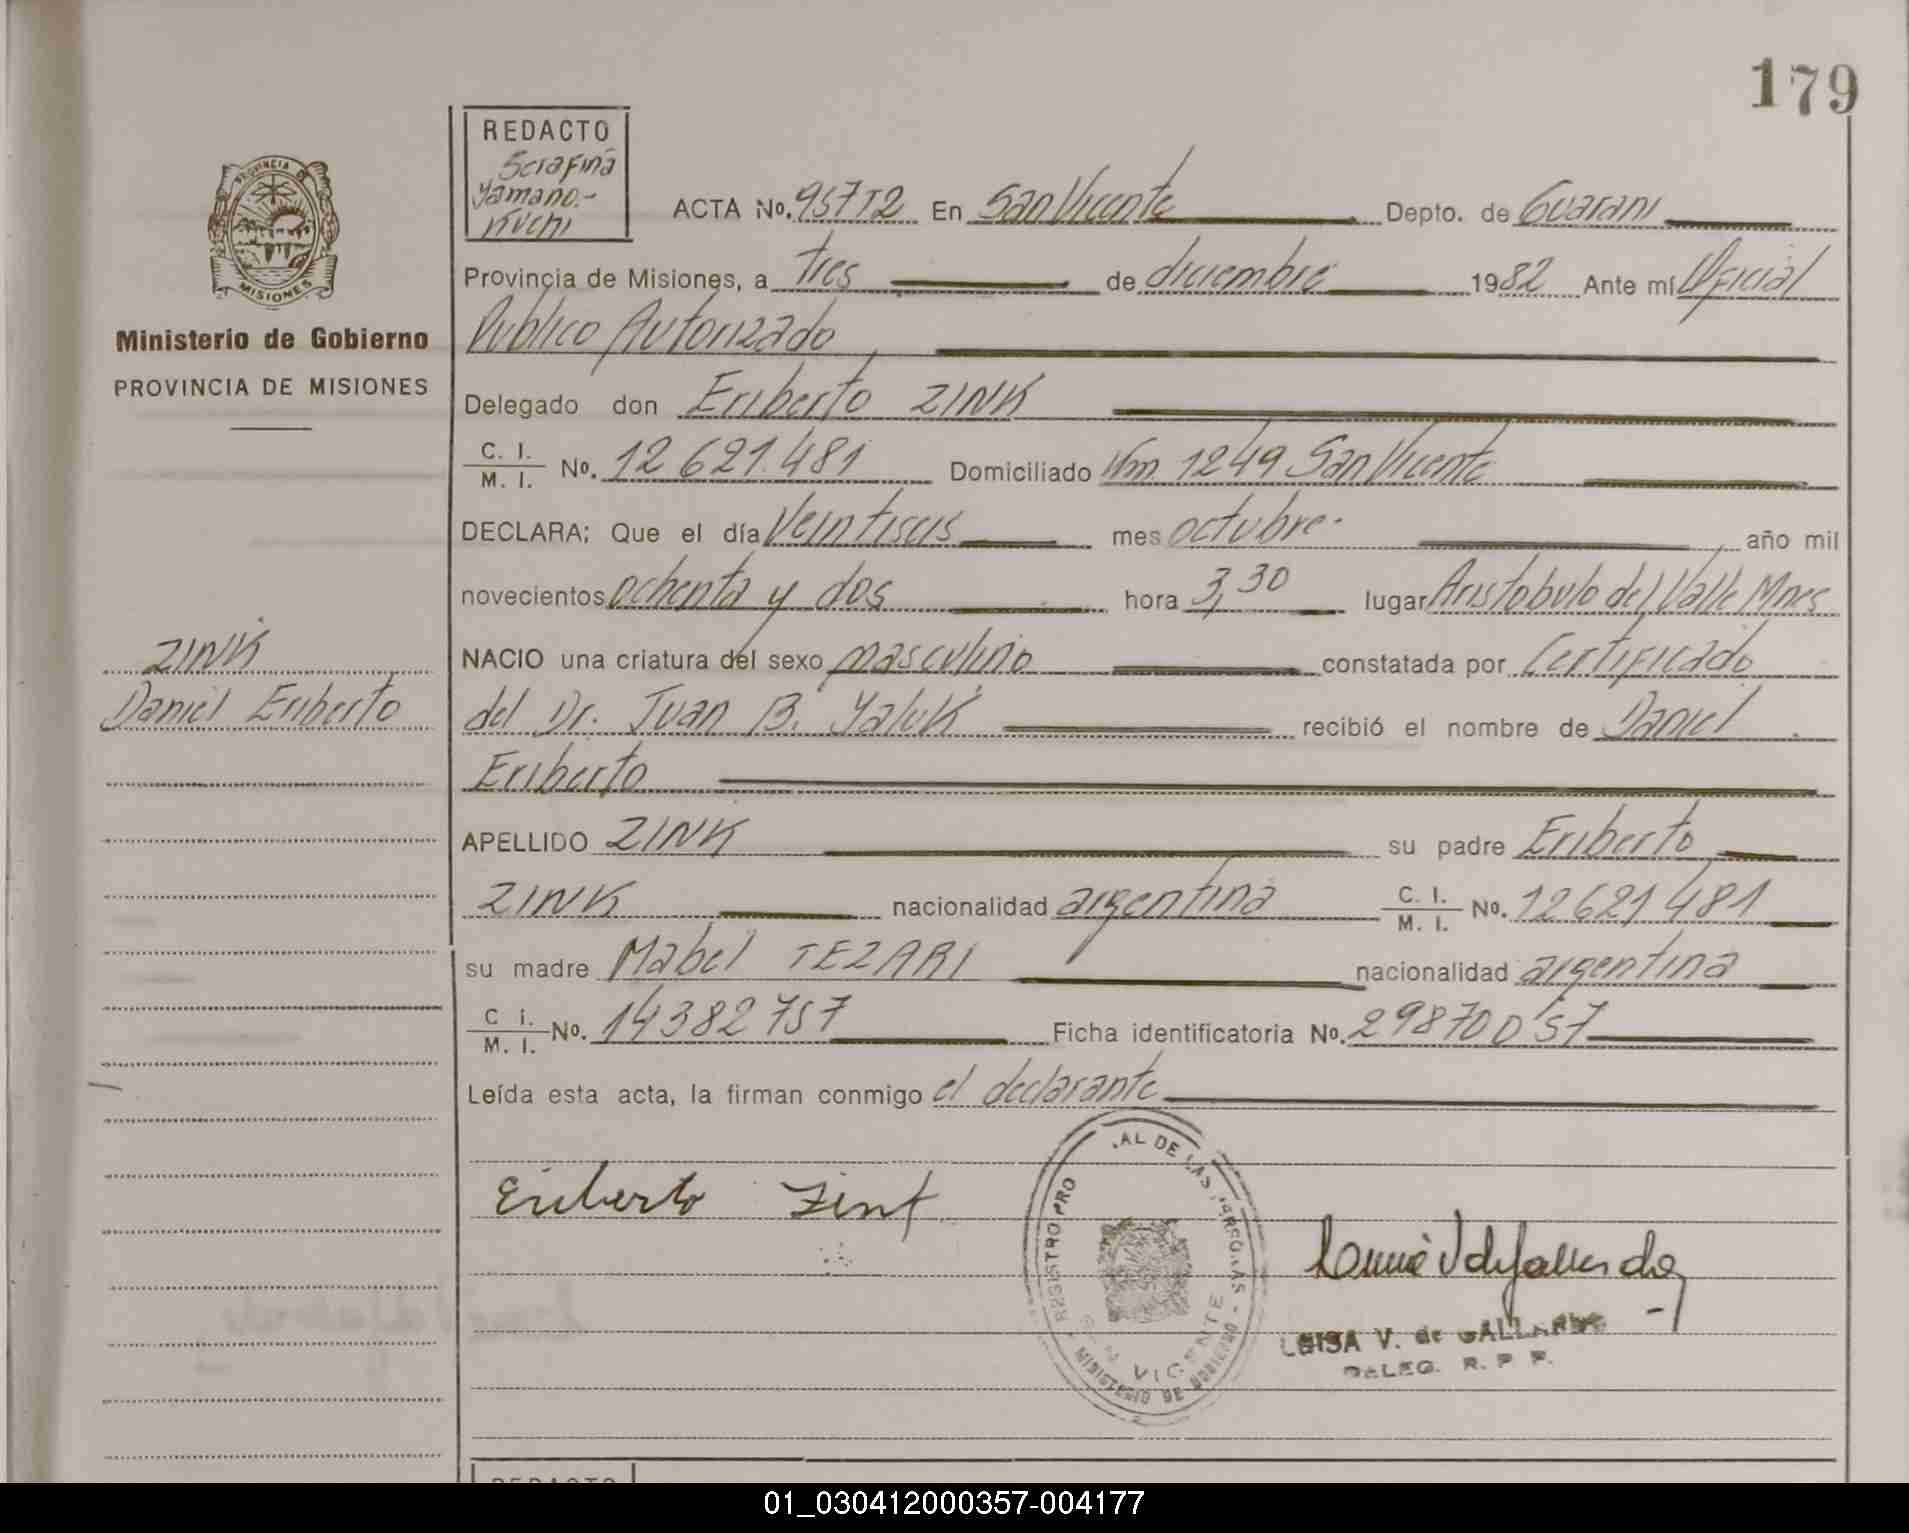 179
REDACTO
Serafina
Yamano.-
Kuchi
PROVINCIA DE
MISIONES
Ministerio de Gobierno
PROVINCIA DE MISIONES
ACTA No. 957T2 En San Vicente Depto. de Guarani
Provincia de Misiones, a tres de diciembre 1982 Ante mí Oficial
Publico Autorizado
Delegado don Eriberto ZINK
C. I. / M. I. No. 12 621.481 Domiciliado Km. 1249 San Vicente
DECLARA; Que el día Veintiseis mes octubre.- año mil
novecientos ochenta y dos hora 3,30 lugar Aristobulo del Valle Mnes
ZINK
Daniel Eriberto
NACIO una criatura del sexo masculino constatada por Certificado
del Dr. Juan B. Yaluk recibió el nombre de Daniel
Eriberto
APELLIDO ZINK su padre Eriberto
ZINK nacionalidad argentina C. I. / M. I. No. 12621481
su madre Mabel TEZARI nacionalidad argentina
C i. / M. I. No. 14382757 Ficha identificatoria No. 29870057
Leída esta acta, la firman conmigo el declarante
Eriberto Zink
REGISTRO PRO AL DE LAS PERSONAS - MINISTERIO DE GOBIERNO
VICENTE
LUISA V. de GALLARDO
DELEG. R. P. P.
REDACTO
01_030412000357-004177